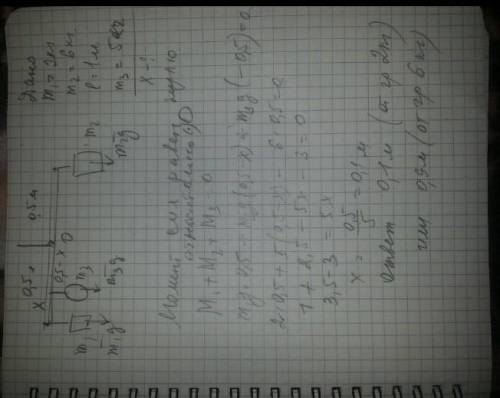 Дано
m₁ = 2кг
m₂ = 6кг
l = 1м
m₃ = 5кг
x - ?
0,5м
0,5м
x
0,5-x
O
m₁
m₁g
m₃
m₃g
m₂
m₂g
Момент сил равен нулю
относительно O
M₁ + M₂ + M₃ = 0
m₁g·0,5 + m₃g(0,5-x) + m₂g(-0,5)=0
2·0,5+5(0,5-x) - 6·0,5=0
1 + 2,5 - 5x - 3 = 0
3,5-3 = 5x
x = 0,5/5 = 0,1м
Ответ 0,1м (от гр 2кг)
или 0,9м (от гр 6кг)